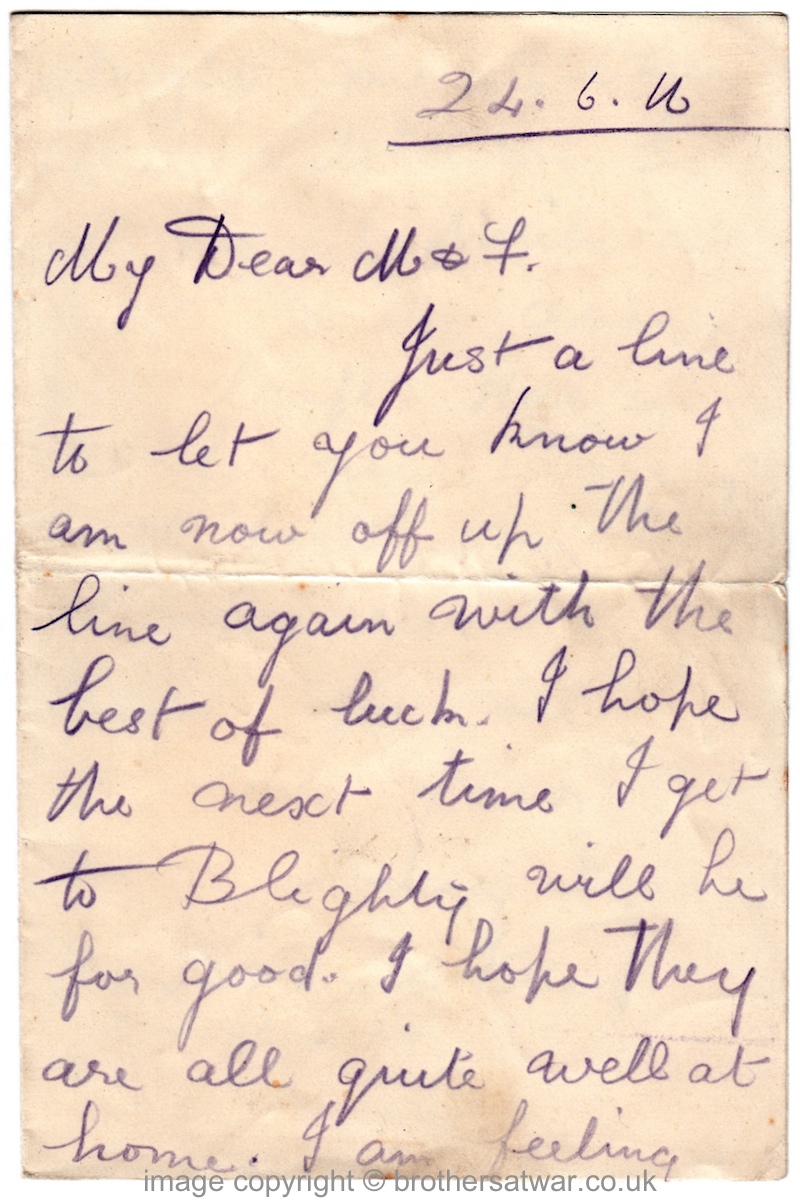 24.6.16
My Dear M & F.
Just a line
to let you know I
am now off up the
line again with the
best of luck. I hope
the next time I get
to Blighty will be
for good. I hope they
are all quite well at
home. I am feeling
image copyright © brothersatwar.co.uk